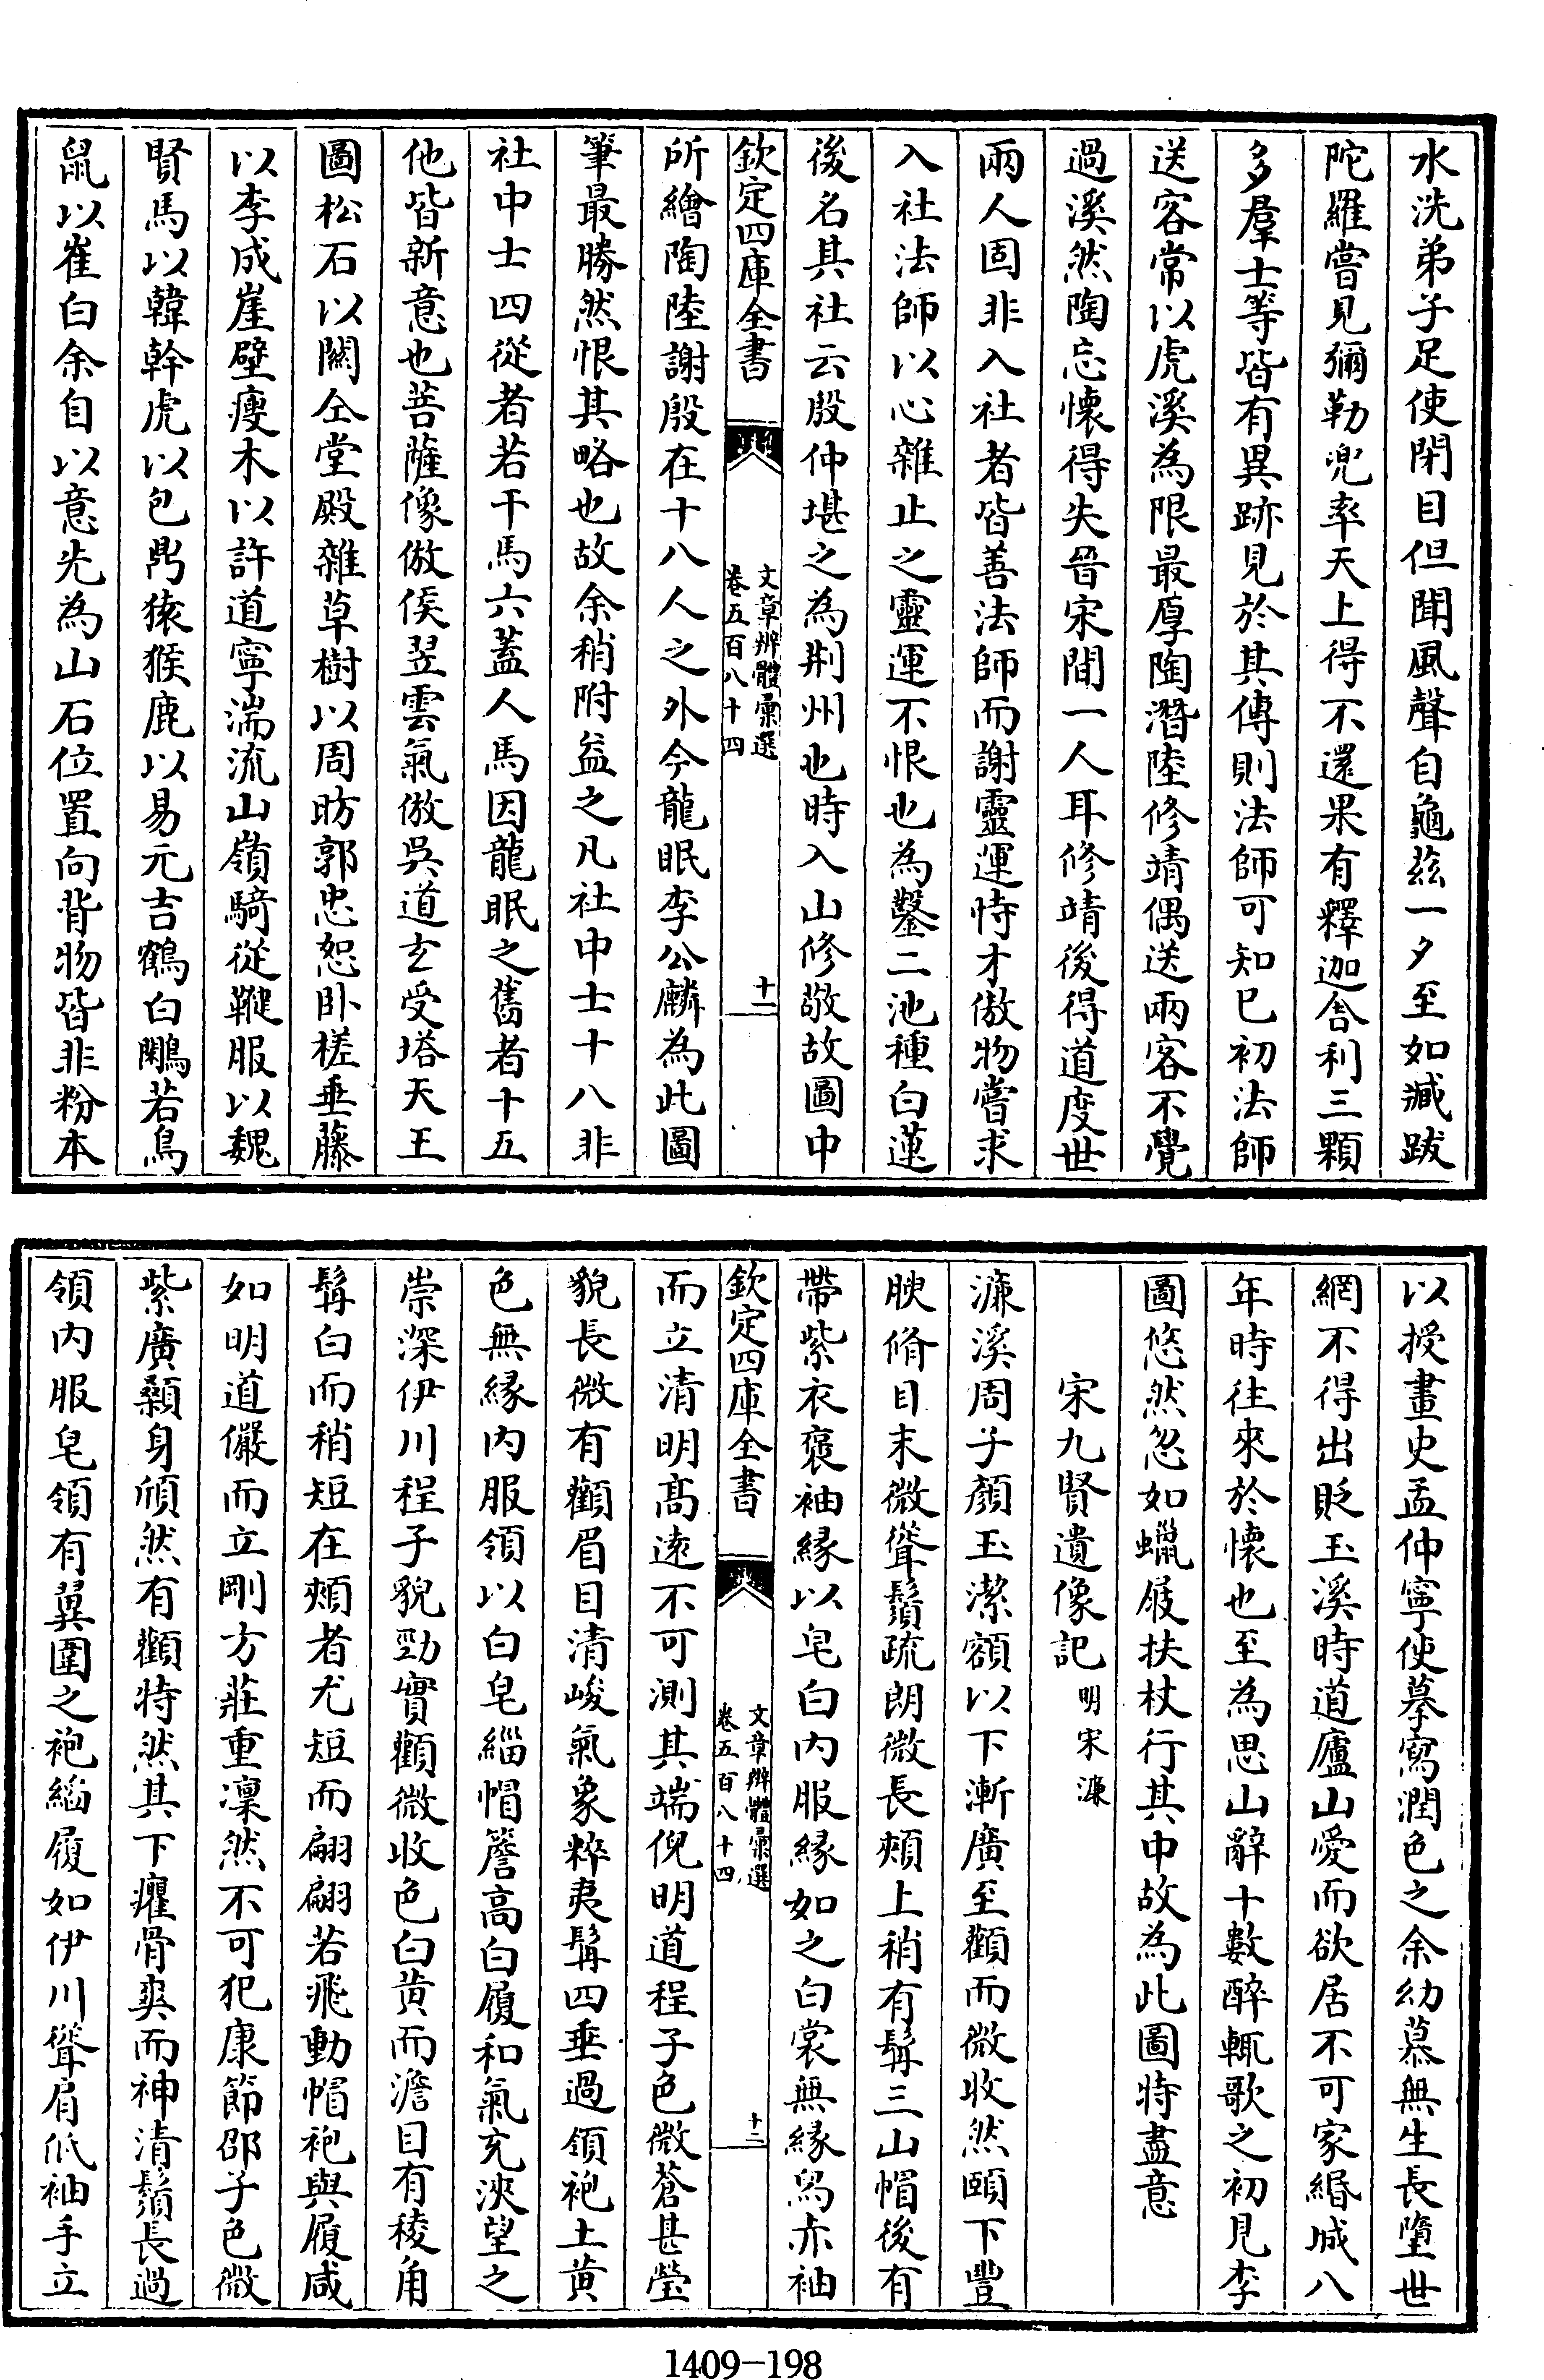 水洗弟子足使閉目但聞風聲自龜茲一夕至如臧跋
陀羅嘗見彌勒兜率天上得不還果有釋迦舍利三顆
多羣士等皆有異跡見於其傳則法師可知已初法師
送客常以虎溪為限最厚陶潛陸修靖偶送兩客不覺
過溪然陶忘懷得失晉宋間一人耳修靖後得道度世
兩人固非入社者皆善法師而謝靈運恃才傲物嘗求
入社法師以心雜止之靈運不恨也為鑿二池種白蓮
後名其社云殷仲堪之為荆州也時入山修敬故圖中
欽定四庫全書
文章辨體彙選
卷五百八十四
十一
所繪陶陸謝殷在十八人之外今龍眠李公麟為此圖
筆最勝然恨其略也故余稍附益之凡社中士十八非
社中士四從者若干馬六蓋人馬因龍眠之舊者十五
他皆新意也菩薩像倣侯翌雲氣倣吳道玄受塔天王
圖松石以關仝堂殿雜草樹以周昉郭忠恕卧槎垂藤
以李成崖壁瘦木以許道寧湍流山嶺騎從鞬服以魏
賢馬以韓幹虎以包鼎猿猴鹿以易元吉鶴白鷴若鳥
鼠以崔白余自以意先為山石位置向背物皆非粉本
以授畫史孟仲寧使摹寫潤色之余幼慕無生長墮世
網不得出貶玉溪時道廬山愛而欲居不可家緡城八
年時往來於懷也至為思山辭十數醉輒歌之初見李
圖悠然忽如蠟屐扶杖行其中故為此圖特盡意
宋九賢遺像記 明宋濂
濂溪周子顏玉潔額以下漸廣至顴而微收然頤下豐
腴脩目末微聳鬚疏朗微長頰上稍有髯三山帽後有
帶紫衣褒袖緣以皂白内服緣如之白裳無緣舄赤袖
欽定四庫全書
文章辨體彙選
卷五百八十四
十二
而立清明高遠不可測其端倪明道程子色微蒼甚瑩
貌長微有顴眉目清峻氣象粹夷髯四垂過領袍土黄
色無緣内服領以白皂緇帽簷高白履和氣充浹望之
崇深伊川程子貌勁實顴微收色白黄而澹目有稜角
髯白而稍短在頰者尤短而翩翩若飛動帽袍與履咸
如明道儼而立剛方莊重凜然不可犯康節邵子色微
紫廣顙身頎然有顴特然其下癯骨爽而神清鬚長過
領内服皂領有翼圍之袍緇履如伊川聳肩低袖手立
1409-198